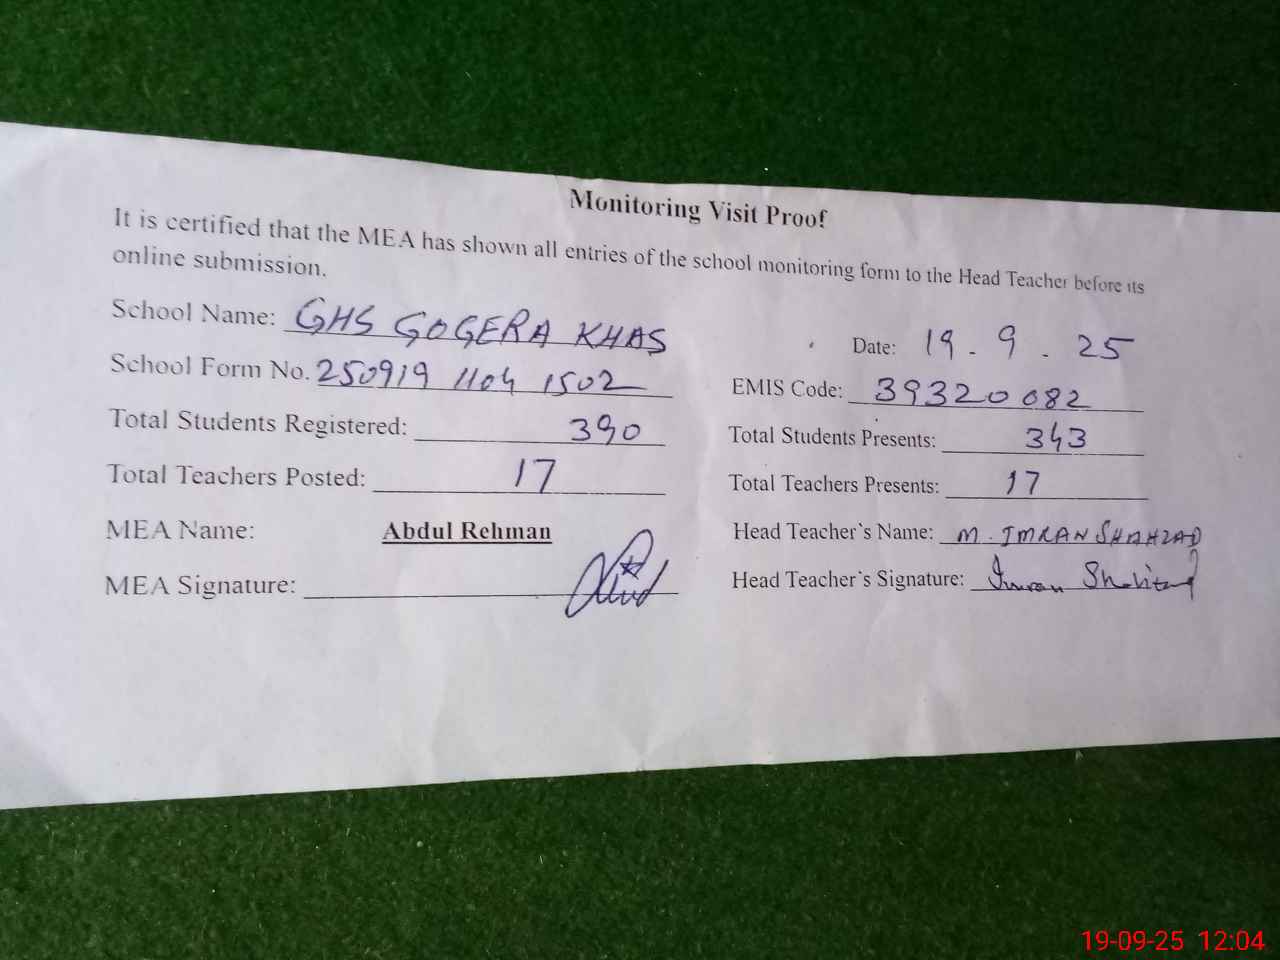 Monitoring Visit Proof
It is certified that the MEA has shown all entries of the school monitoring form to the Head Teacher before its
online submission.
School Name: GHS GOGERA KHAS
Date: 19.9.25
School Form No. 250919 1104 1502
EMIS Code: 39320082
Total Students Registered: 390
Total Students Presents: 343
Total Teachers Posted: 17
Total Teachers Presents: 17
MEA Name: Abdul Rehman
Head Teacher`s Name: M. IMRAN SHAHZAD
MEA Signature:
Head Teacher`s Signature: Imran Shahzad
19-09-25 12:04